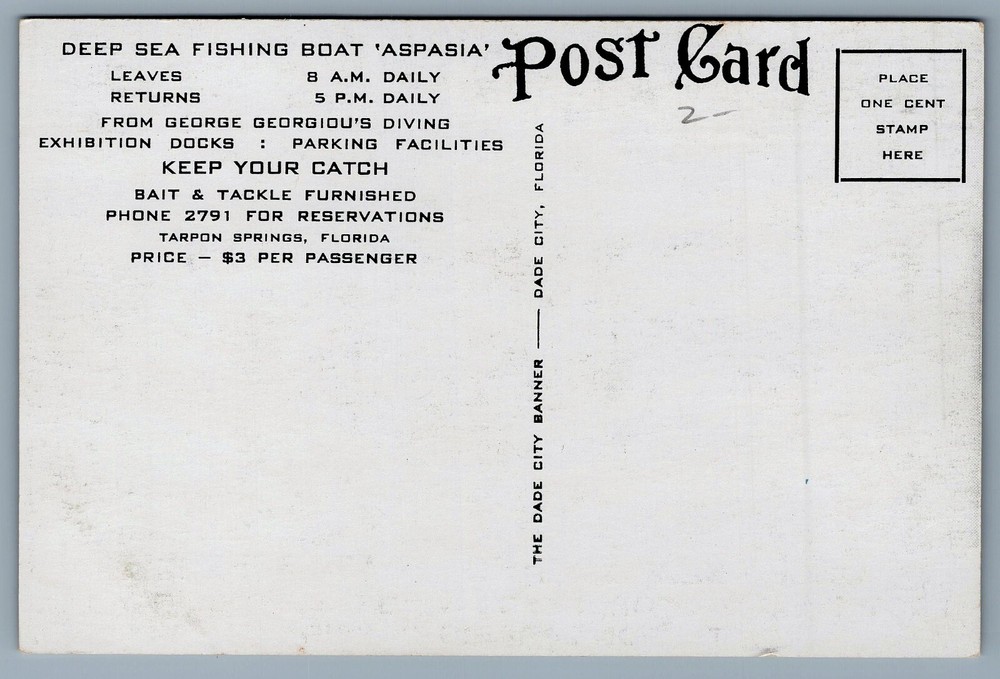 DEEP SEA FISHING BOAT 'ASPASIA'
LEAVES 8 A.M. DAILY
RETURNS 5 P.M. DAILY
FROM GEORGE GEORGIOU'S DIVING
EXHIBITION DOCKS : PARKING FACILITIES
KEEP YOUR CATCH
BAIT & TACKLE FURNISHED
PHONE 2791 FOR RESERVATIONS
TARPON SPRINGS, FLORIDA
PRICE — $3 PER PASSENGER
THE DADE CITY BANNER —— DADE CITY, FLORIDA
Post Card
2-
PLACE
ONE CENT
STAMP
HERE